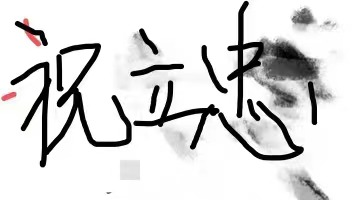 祝立忠